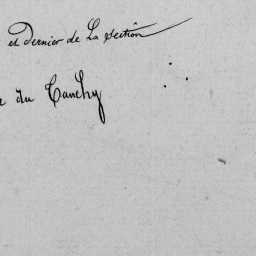 et Dernier de La section
du Canchy